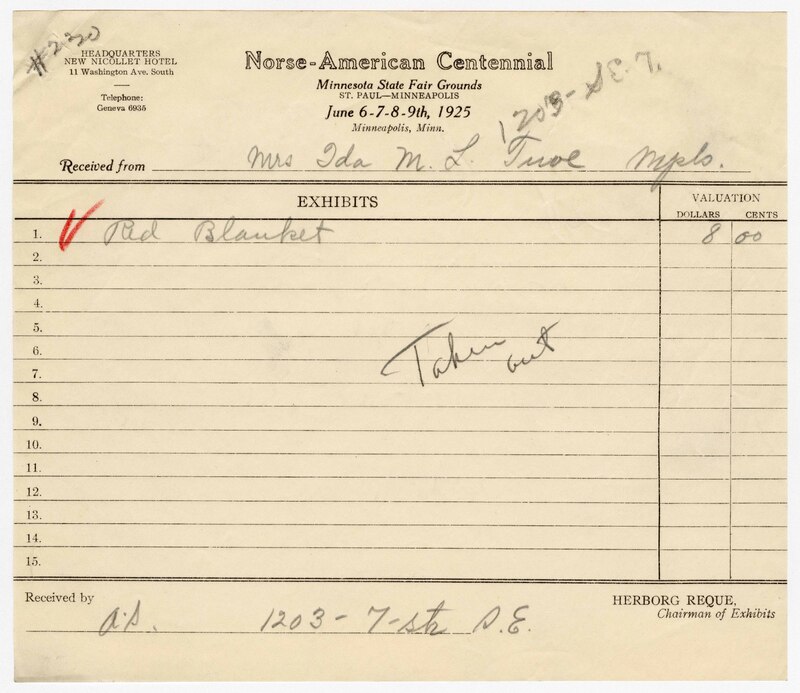 #220
HEADQUARTERS
NEW NICOLLET HOTEL
11 Washington Ave. South
Telephone:
Geneva 6935
Norse-American Centennial
Minnesota State Fair Grounds
ST. PAUL—MINNEAPOLIS
June 6-7-8-9th, 1925
Minneapolis, Minn.
1203- S.E. 7.
Received from Mrs Ida M. L. Tuve Mpls.
EXHIBITS VALUATION
DOLLARS CENTS
1. Red Blanket 8 00
2.
3.
4.
5.
6.
7.
Taken out
8.
9.
10.
11.
12.
13.
14.
15.
Received by A.S. 1203 - 7-str S.E.
HERBORG REQUE,
Chairman of Exhibits